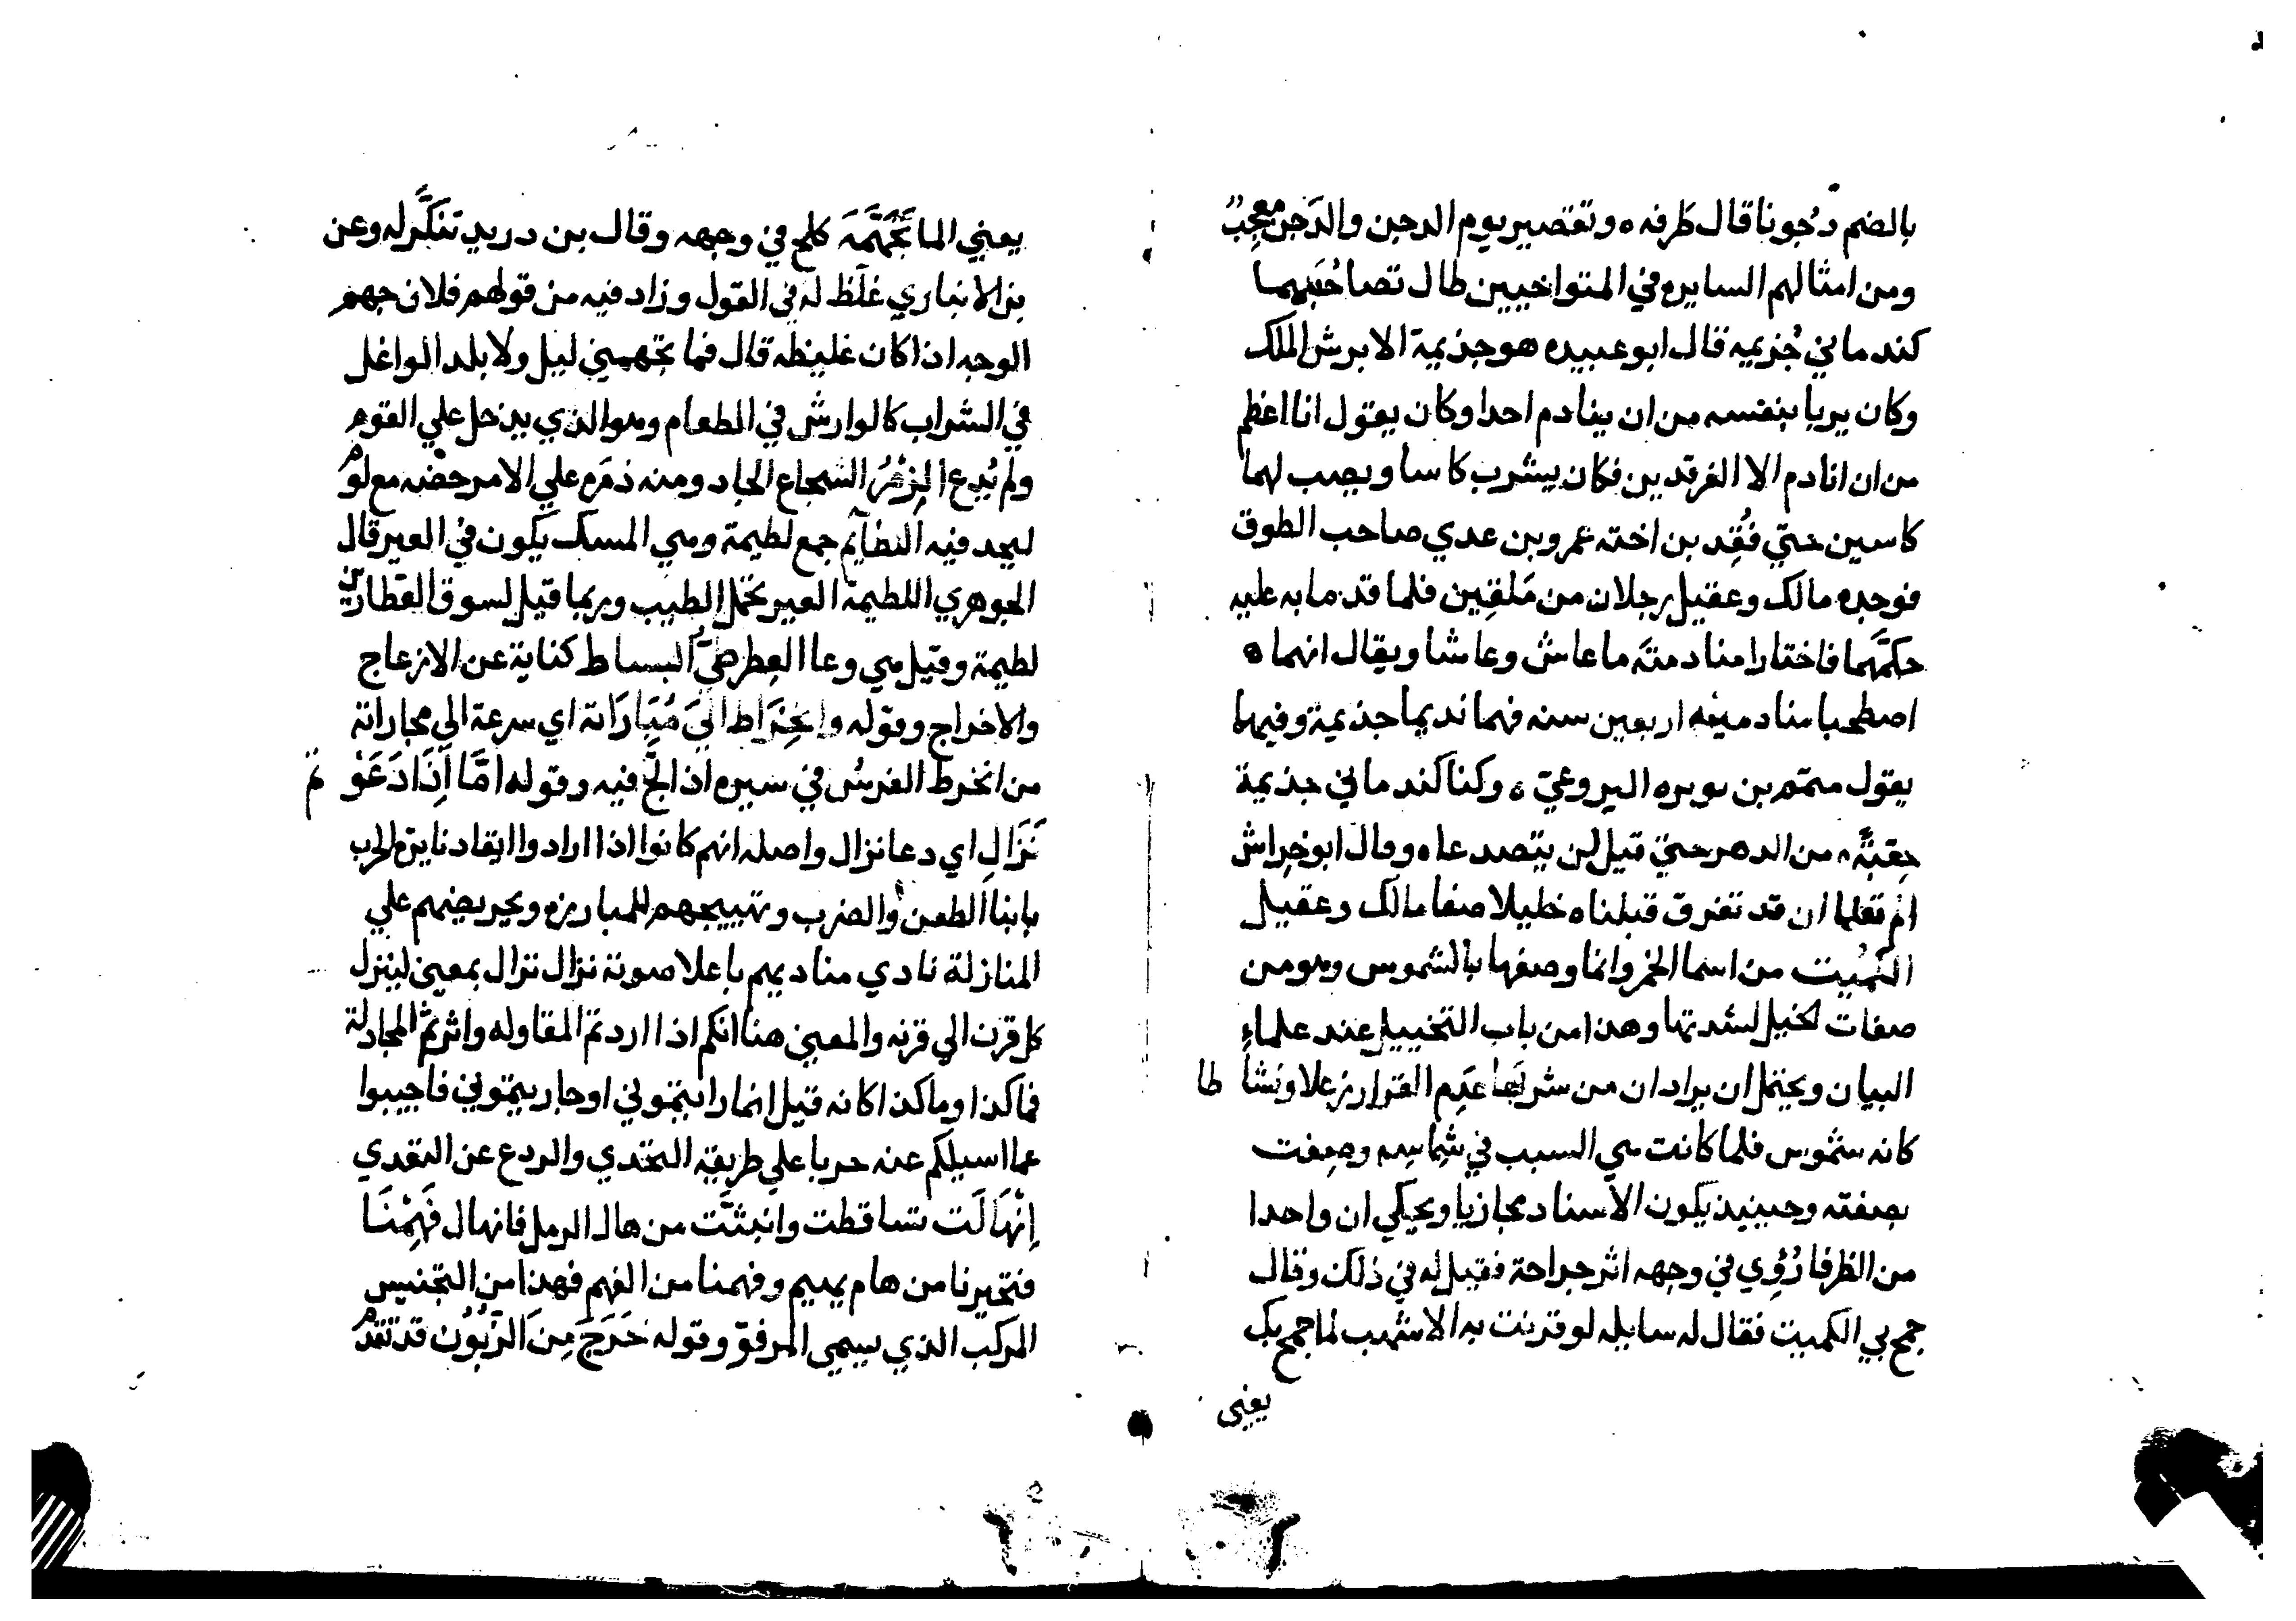 بالضم دُجونا قال طرفه ه وتقصير يوم الدجن والدَجن معجِبٌ
ومن امثالهم السايره في المتواخيين طال تصاحُبَهما
كندماني جُذيمه قال ابو عبيده هو جذيمة الابرش الملك
وكان يربا بنفسه من ان ينادم احدا وكان يقول انا اعظم
من ان انادم الا الفرقدين فكان يشرب كاسا ويصب لهما
كاسين حتي فُقِد بن اخته عمرو بن عدي صاحب الطوق
فوجده مالك وعقيل رجلان من بَلقِين فلما قدما به عليه
حكمَّهما فاختارا منادمتَه ما عاش وعاشا ويقال انهما ه
اصطحبا منادمينه اربعين سنه فهما نديما جذيمة وفيهما
يقول متمم بن نويره اليروعيّ ه وكنا كندماني جذيمة
حِقبَةً ه من الدهر حتي قيل لن يتصدعا ه وقال ابو خِراش
الم تعلما ان قد تفرق قبلنا ه خليلا صفا مالك وعقيل
الكُميت من اسما الخمر وانما وصفها بالشموس وهو من
صفات لخيل لشدتها وهذا من باب التخييل عند علماءِ
البيان ويحتمل ان يراد ان من شربها عَدِم القرار نزعلا ونشاطا
كانه شموس فلما كانت هي السبب في شِماسِه وصِفت
بصفته وحينيذ يكون الاسناد مجازيا ويحكي ان واحدا
من الظرفا رُؤي في وجهه اثر جراحة فقيل له في ذلك وقال
جمح بي الكميت فقال له سايله لو قرنت به الاشهب لما جمح بك
يعني
يعني الما تَجَهَّمَهَ كلح في وجهه وقال بن دريد تنَكَّر له وعن
بن الانباري غلّظ له في القول وزاد فيه من قولهم فلان جهم
الوجه اذا كان غليظه قال فما تجهمني ليل ولا بلد الواغل
في الشراب كالوارش في الطعام وهو الذي يدخل علي القوم
ولم يُدع الذِمْرُ الشجاع الجاد ومنه ذمَره علي الامر حضه مع لومٌ
ليجد فيه اللطايم جمع لطيمة وهي المسك يكون في العير قال
الجوهري اللطيمة العير تحمل الطيب وربما قيل لسوق العطارين
لطيمة وقيل هي وعاا العِطر طيُّ البساط كناية عن الازعاج
والاخراج وقوله وانْخِرَاط الَيَ مُبَارَاته اي سرعة الي مجاراته
من انخرط الفرس في سيره اذا لَجَّ فيه وقوله امَّا اِذَا دَعَوْتم
نَزَالِ اي دعا نزال واصله انهم كانوا اذا ارادوا ايقاد نايره الحرب
بابنا الطعن والضرب وتهييجهم للمبارزه وتحريضهم علي
المنازلة نادي مناديهم باعلا صوته نزال نزال بمعني لينزل
كل قرن الي قرنه والمعني هنا انكم اذا اردتم المقاوله واثرتُم المجادلة
فما كذا وما كذا كانه قيل انما راتيتموني او جاريتموني فاجيبوا
عما اسيلكم عنه حربا علي طريقه التحدي والردع عن التعدي
اِنْهَالَت تساقطت وانبثَّت من هال الرمل فانهال فَهِمْنَا
فتحيرنا من هام يهيم وفهمنا من الفهم فهذا من التجنيس
المركب الذي يسمي المرفوّ وقوله حَرَجَ مِنَ الزَبُوْن قد تقدمٌ